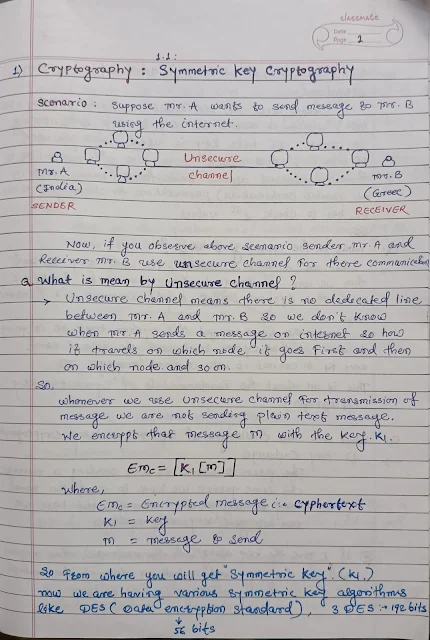 classmate
Date
Page 1
1.1:
1) Cryptography : Symmetric Key Cryptography
Scenario : Suppose Mr. A wants to send message to Mr. B
using the internet.
Unsecure
channel
Mr. A
(India)
SENDER
Mr. B
(Greec)
RECEIVER
Now, if you obsesve above scenario sender Mr. A and
Receiver Mr. B use unsecure channel for there communication
Q What is mean by Unsecure channel ?
→ Unsecure channel means there is no dedicated line
between Mr. A and Mr. B so we don't know
when Mr A sends a message on internet so how
it travels on which node it goes First and then
on which node and so on.
So,
whonever we use unsecure channel for transmission of
message we are not sending plain text message.
We encrypt that message m with the key K1.
Emc = [K1 [m]]
Where,
Emc = Encrypted message i.e cyphertext
K1 = Key
m = message to send
So From where you will get "Symmetric Key" (K1)
now we are having various symmetric key algorithms
like DES (Data encryption standard), 3 DES :- 192 bits
↓
56 bits